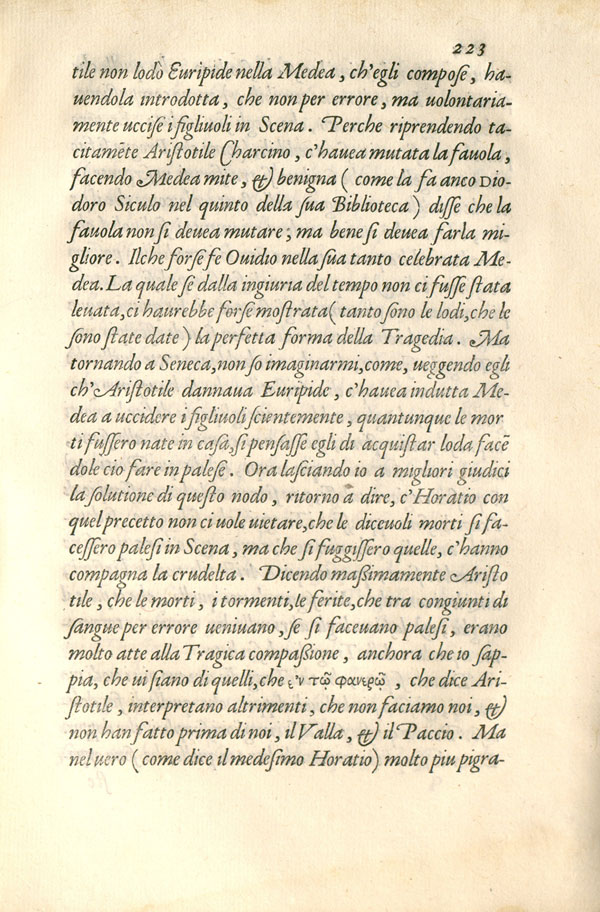 223
tile non lodò Euripide nella Medea, ch'egli compose, ha-
uendola introdotta, che non per errore, ma uolontaria-
mente uccise i figliuoli in Scena. Perche riprendendo ta-
citamẽte Aristotile Charcino, c'hauea mutata la fauola,
facendo Medea mite, & benigna (come la fa anco Dio-
doro Siculo nel quinto della sua Biblioteca) disse che la
fauola non si deuea mutare; ma bene si deuea farla mi-
gliore. Ilche forse fe Ouidio nella sua tanto celebrata Me-
dea. La quale se dalla ingiuria del tempo non ci fusse stata
leuata, ci haurebbe forse mostrata (tanto sono le lodi, che le
sono state date) la perfetta forma della Tragedia. Ma
tornando a Seneca, non so imaginarmi, come, ueggendo egli
ch'Aristotile dannaua Euripide, c'hauea indutta Me-
dea a uccidere i figliuoli scientemente, quantunque le mor
ti fussero nate in casa, si pensasse egli di acquistar loda facẽ
dole cio fare in palese. Ora lasciando io a migliori giudici
la solutione di questo nodo, ritorno a dire, c'Horatio con
quel precetto non ci uole uietare, che le diceuoli morti si fa-
cessero palesi in Scena, ma che si fuggissero quelle, c'hanno
compagna la crudelta. Dicendo massimamente Aristo
tile, che le morti, i tormenti, le ferite, che tra congiunti di
sangue per errore ueniuano, se si faceuano palesi, erano
molto atte alla Tragica compassione, anchora che io sap-
pia, che ui siano di quelli, che ἐν τῷ φανερῷ, che dice Ari-
stotile, interpretano altrimenti, che non faciamo noi, &
non han fatto prima di noi, il Valla, & il Paccio. Ma
nel uero (come dice il medesimo Horatio) molto piu pigra-